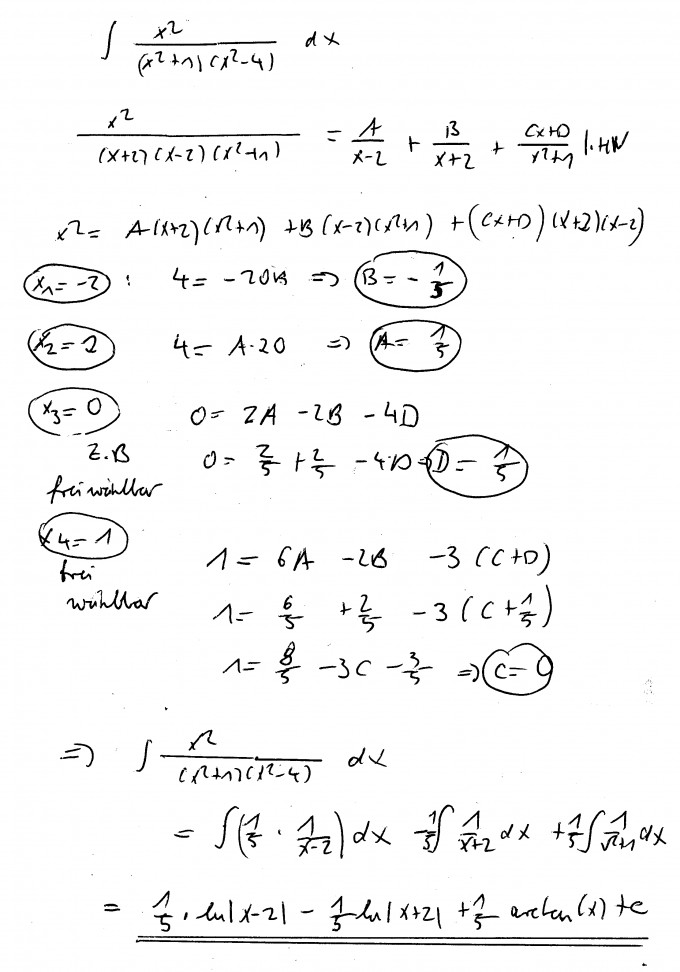 ∫ x²/((x²+1)(x²-4)) dx
x²/((x+2)(x-2)(x²+1)) = A/(x-2) + B/(x+2) + (Cx+D)/(x²+1) |·HN
x² = A(x+2)(x²+1) + B(x-2)(x²+1) + (Cx+D)(x+2)(x-2)
x₁ = -2 : 4 = -20B ⇒ B = -1/5
x₂ = 2 4 = A·20 ⇒ A = 1/5
x₃ = 0 0 = 2A - 2B - 4D
z.B 0 = 2/5 + 2/5 - 4D ⇒ D = 1/5
frei wählbar
x₄ = 1 1 = 6A - 2B - 3(C+D)
frei
wählbar 1 = 6/5 + 2/5 - 3(C + 1/5)
1 = 8/5 - 3C - 3/5 ⇒ C = 0
⇒ ∫ x²/((x²+1)(x²-4)) dx
= ∫(1/5 · 1/(x-2)) dx - 1/5 ∫ 1/(x+2) dx + 1/5 ∫ 1/(x²+1) dx
= 1/5 · ln|x-2| - 1/5 ln|x+2| + 1/5 arctan(x) + c